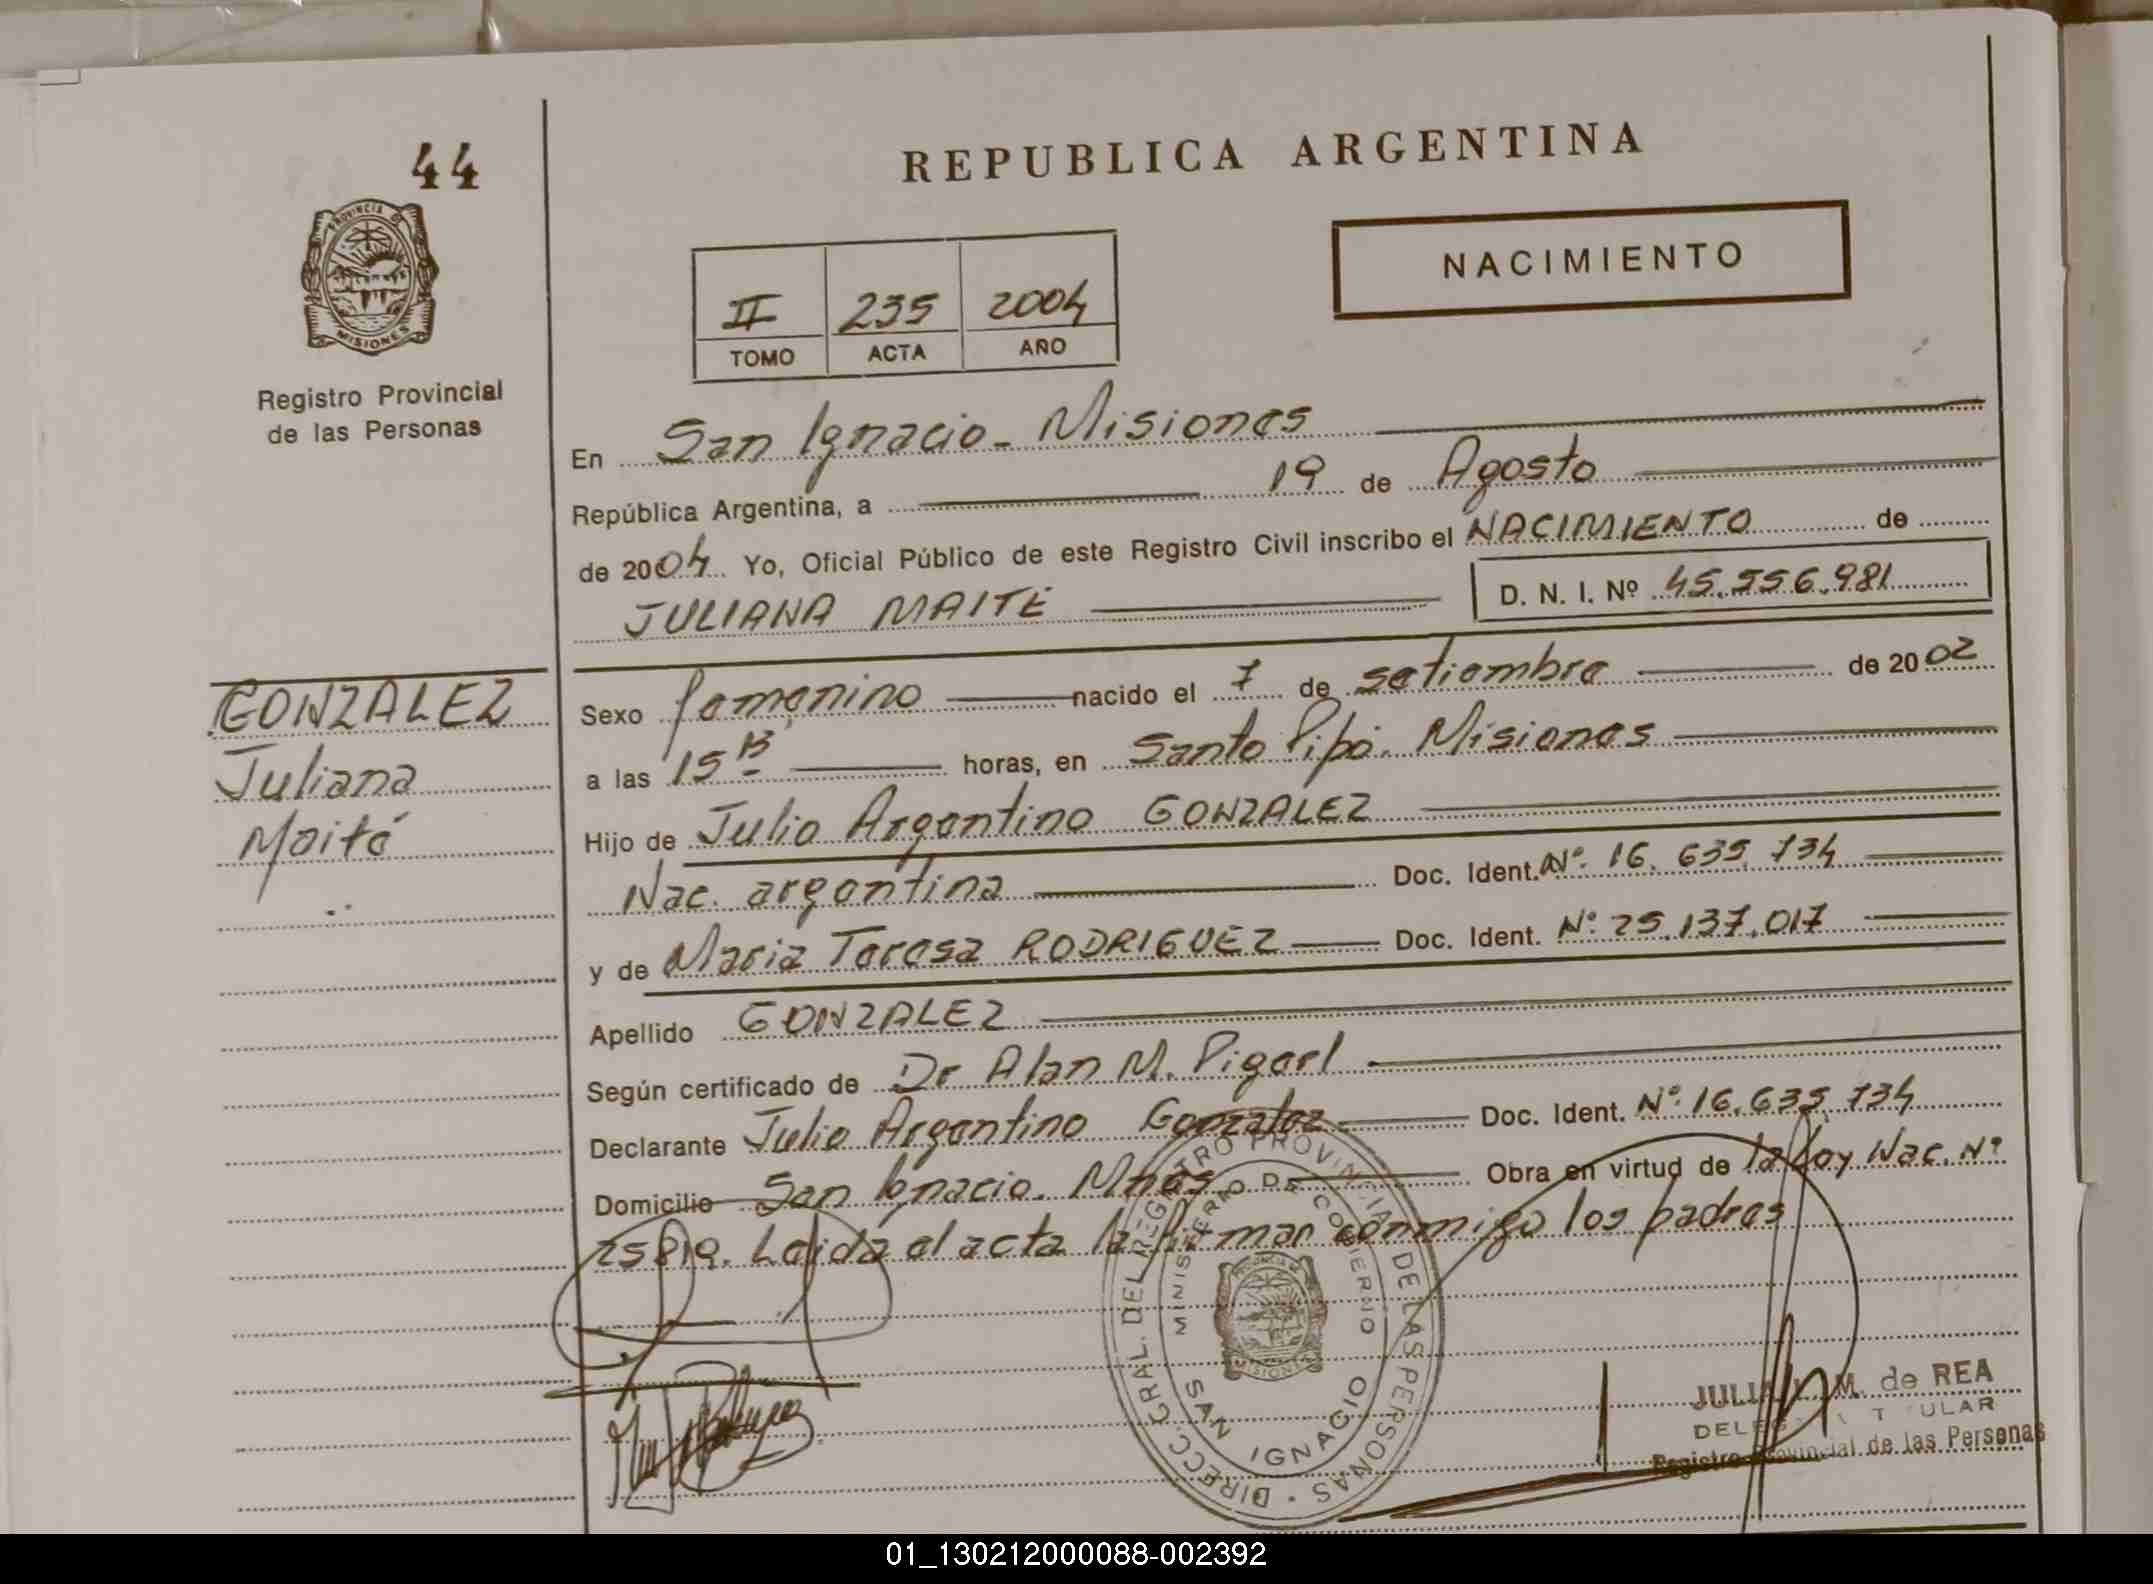 44
PROVINCIA DE
MISIONES
Registro Provincial
de las Personas
REPUBLICA ARGENTINA
NACIMIENTO
II 235 2004
TOMO ACTA AÑO
En San Ignacio - Misiones
República Argentina, a 19 de Agosto
de 2004. Yo, Oficial Público de este Registro Civil inscribo el NACIMIENTO de
JULIANA MAITÉ D. N. I. Nº 45.556.981
GONZALEZ
Juliana
Maité
Sexo femenino nacido el 7 de setiembre de 2002
a las 15 horas, en Santo Pipó. Misiones
Hijo de Julio Argentino GONZALEZ
Nac. argentina Doc. Ident. Nº. 16.635.734
y de Maria Teresa RODRIGUEZ Doc. Ident. Nº 25.137.017
Apellido GONZALEZ
Según certificado de Dr Alan M.
Declarante Julio Argentino Gonzalez Doc. Ident. Nº. 16.635.734
Domicilio San Ignacio. Mnes Obra en virtud de la Ley Nac. Nº
25819. Leida el acta la firman conmigo los padres
DIRECC. GRAL. DEL REGISTRO PROVINCIAL DE LAS PERSONAS
MINISTERIO DE GOBIERNO
SAN IGNACIO
PROVINCIA DE
MISIONES
JULIA M. de REA
Registro Provincial de las Personas
01_130212000088-002392